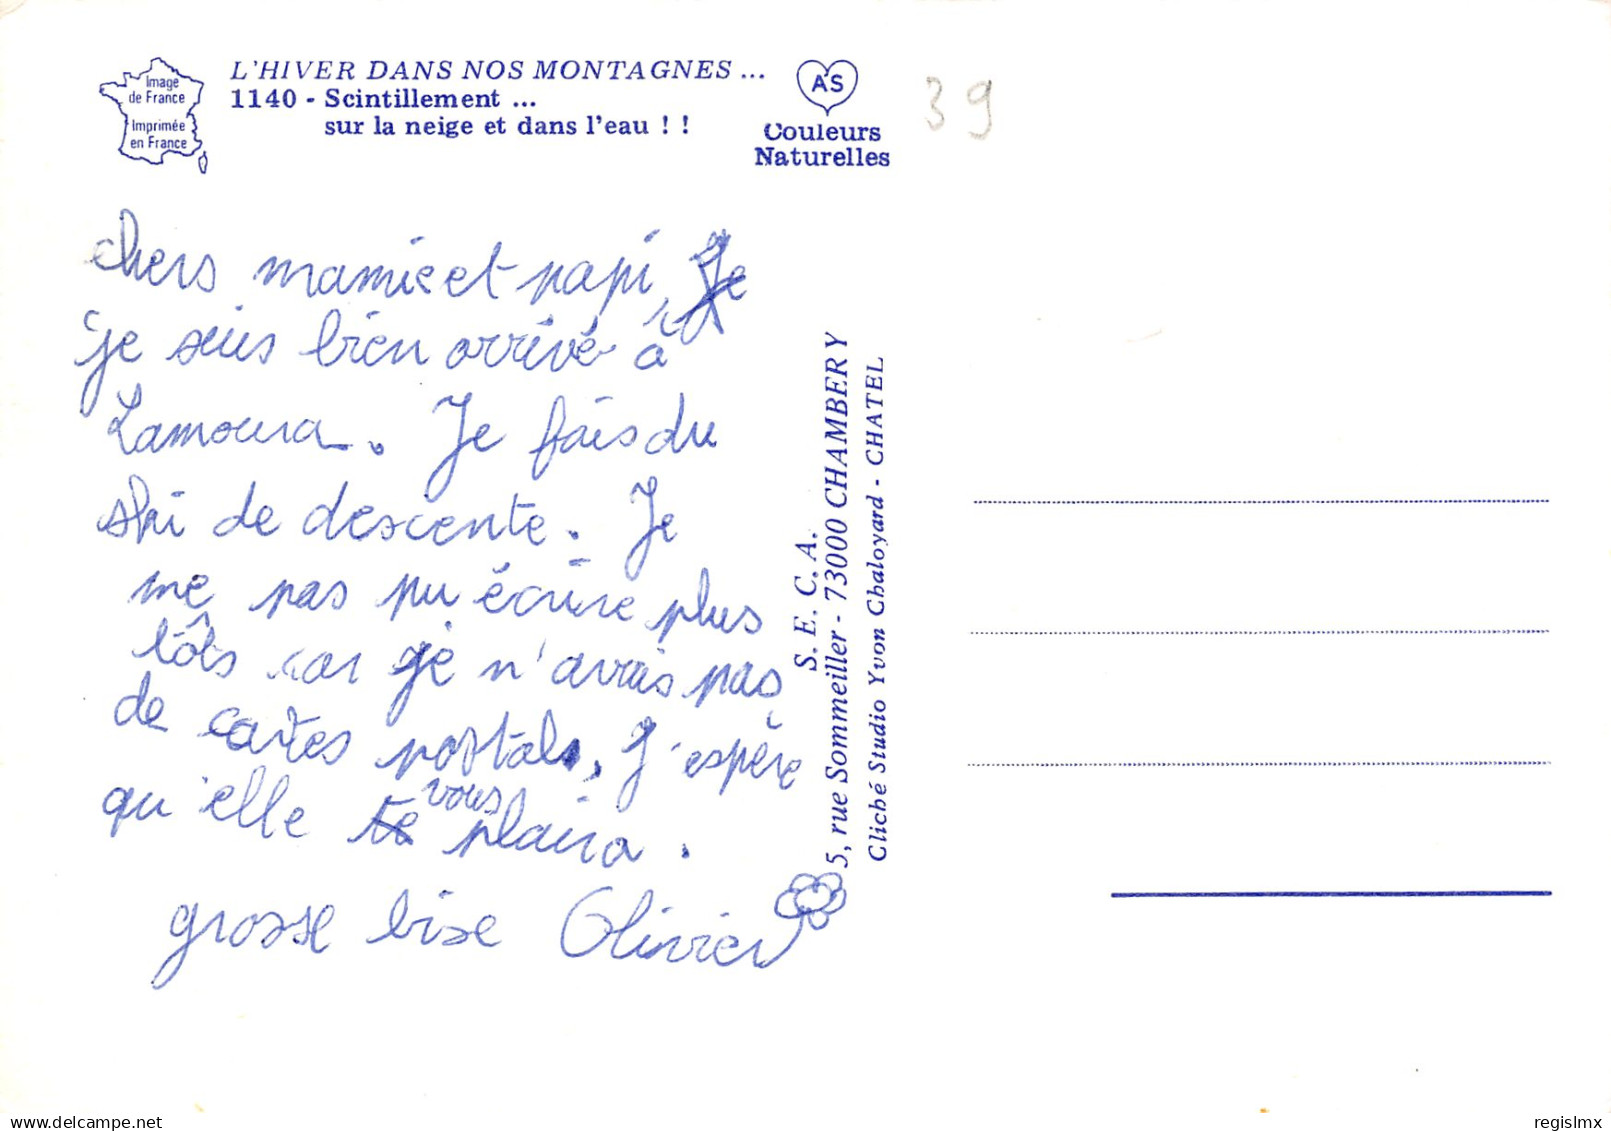 Image
de France
Imprimée
en France
L'HIVER DANS NOS MONTAGNES ...
1140 - Scintillement ...
sur la neige et dans l'eau ! !
AS
Couleurs
Naturelles
39
chers mamie et papi, Je
je suis bien arrivé à
Lamoura. Je fais du
ski de descente. Je
me pas pu écrire plus
tôts car je n'avais pas
de cartes postals. J'espère
qu'elle te vous plaira.
grosse bise Olivier
S. E. C. A.
5, rue Sommeiller - 73000 CHAMBERY
Cliché Studio Yvon Chaloyard - CHATEL
delcampe.net
regislmx